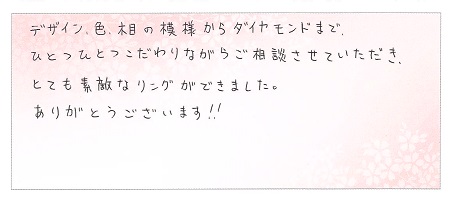 デザイン、色、木目の模様からダイヤモンドまで、
ひとつひとつこだわりながらご相談させていただき、
とても素敵なリングができました。
ありがとうございます!!